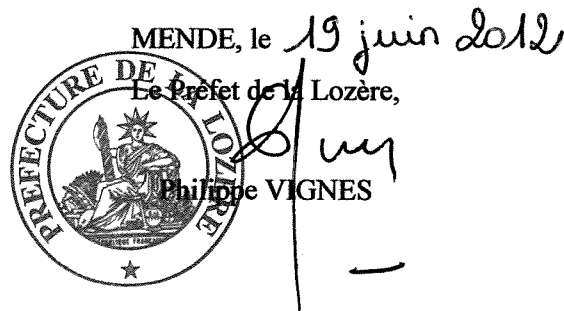 MENDE, le 19 juin 2012
Le Préfet de la Lozère,
Philippe VIGNES
PREFECTURE DE LA LOZERE
REPUBLIQUE FRANCAISE